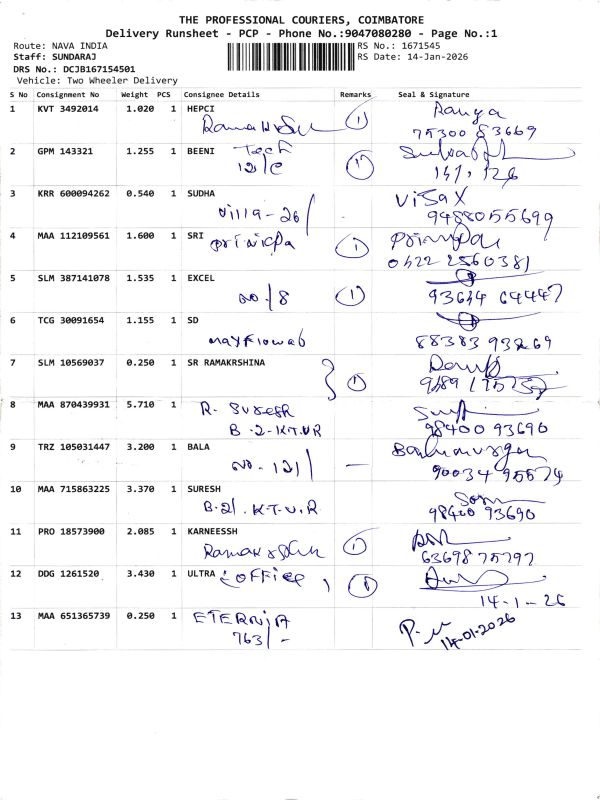 THE PROFESSIONAL COURIERS, COIMBATORE
Delivery Runsheet - PCP - Phone No.:9047080280 - Page No.:1
Route: NAVA INDIA
RS No.: 1671545
Staff: SUNDARAJ
RS Date: 14-Jan-2026
DRS No.: DCJB167154501
Vehicle: Two Wheeler Delivery
S No Consignment No Weight PCS Consignee Details Remarks Seal & Signature
1 KVT 3492014 1.020 1 HEPCI
1
75300 83669
2 GPM 143321 1.255 1 BEENI Tech
12/C
3 KRR 600094262 0.540 1 SUDHA
villa-26/ -
94880 55699
4 MAA 112109561 1.600 1 SRI
1
0422 2560381
5 SLM 387141078 1.535 1 EXCEL
no-/8 1
93644 64447
6 TCG 30091654 1.155 1 SD
88383 93269
7 SLM 10569037 0.250 1 SR RAMAKRSHINA
1
8 MAA 870439931 5.710 1 R. Suresh
B-2-K.T.V.R
98400 93690
9 TRZ 105031447 3.200 1 BALA
no-121/ -
90034 95574
10 MAA 715863225 3.370 1 SURESH
B-2/. K.T.V.R
98400 93690
11 PRO 18573900 2.085 1 KARNEESSH
1
63698 75797
12 DDG 1261520 3.430 1 ULTRA : OFFICE,
14-1-26
13 MAA 651365739 0.250 1 ETERNIA
763/-
14-01-2026